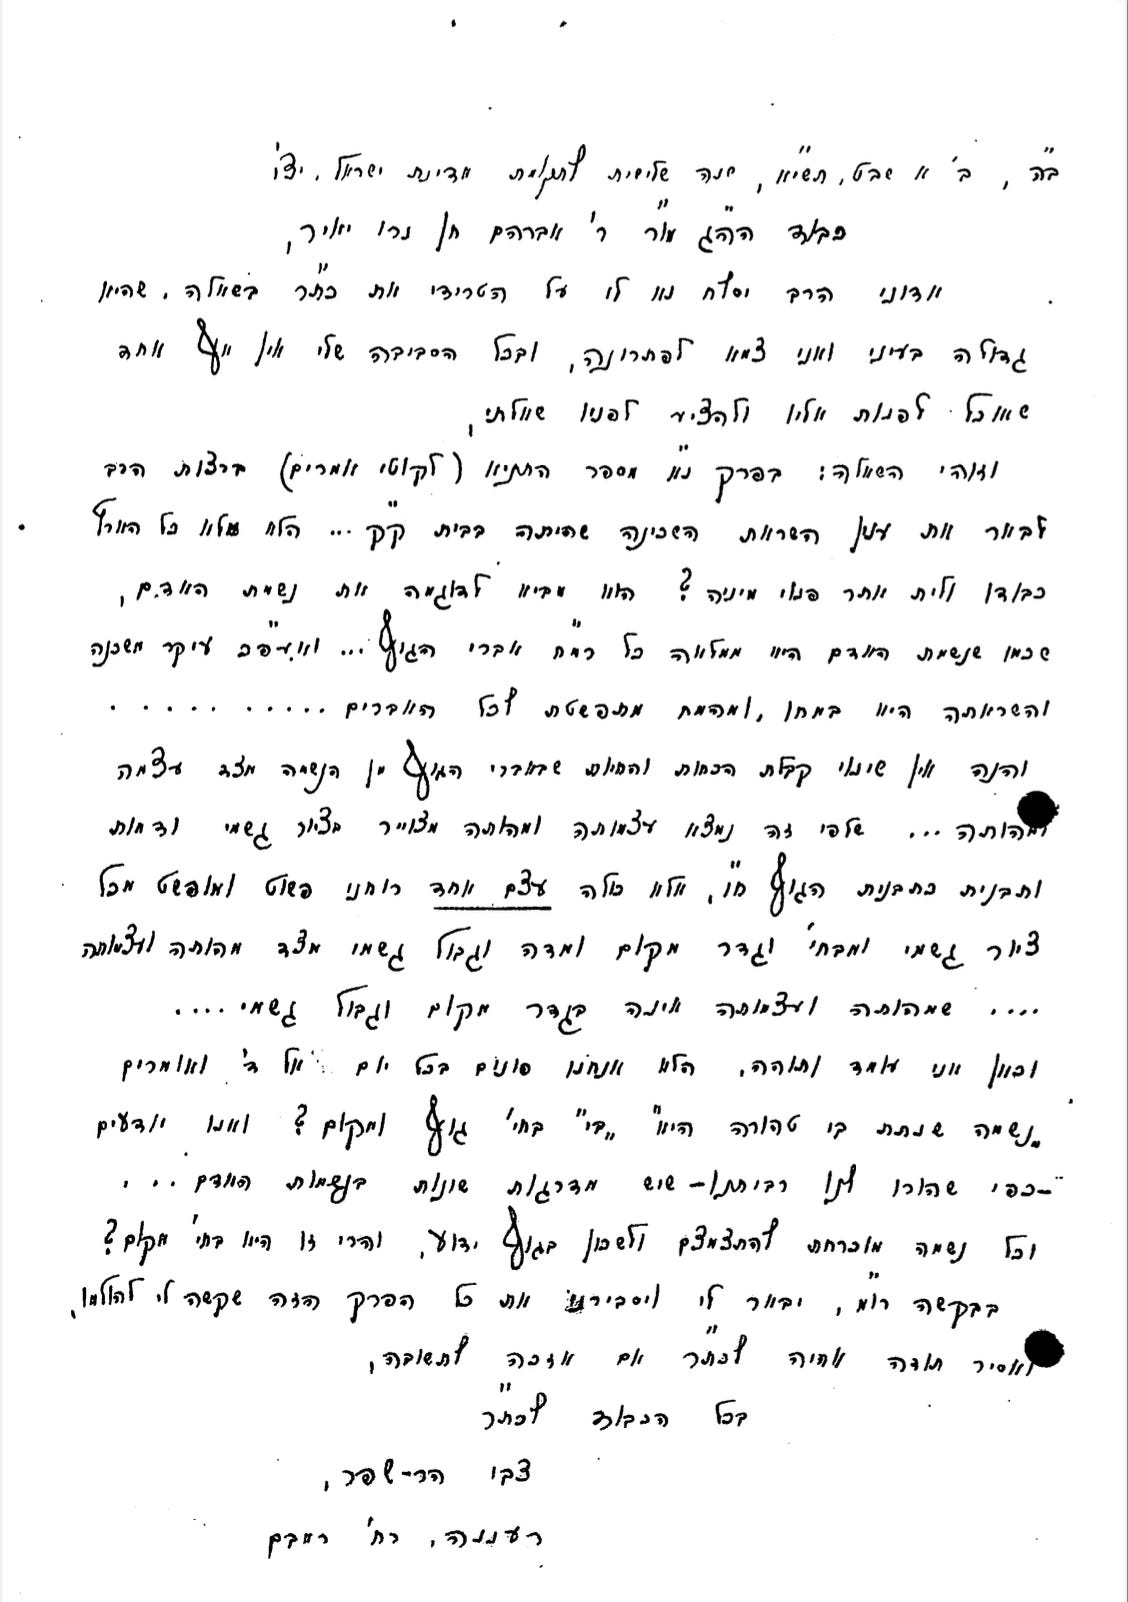 ב"ה, ב' א שבט, תשי"א, שנה שלישית לתקומת מדינת ישראל, יצ"ו
כבוד הרה"ג מו"ר ר' אברהם חן נרו יאיר,
אדוני הרב יסלח נא לי על הטרידי את כת"ר בשאלה, שהיא
גדולה בעיני ואני צמא לפתרונה, ובכל הסביבה שלי אין אף אחד
שאוכל לפנות אליו ולהציע לפניו שאלתי,
וזוהי השאלה: בפרק נ"א מספר התניא (לקוטי אמרים) ברצות הרב
לבאר את ענין השראת השכינה שהיתה בבית ק"ק ... הלא מלא כל הארץ
כבודו ולית אתר פנוי מיניה? הוא מביא לדוגמה את נשמת האדם,
שכמו שנשמת האדם היא ממלאה כל רמ"ח אברי הגוף ... ואעפ"כ עיקר משכנה
והשראתה היא במחו, ומהמח מתפשטת לכל האברים ..........
והנה אין שינוי קבלת הכחות והחיות שבאברי הגוף מן הנשמה מצד עצמה
ומהותה ... שלפי זה נמצא עצמותה ומהותה מצוייר בציור גשמי ודמות
ותבנית כתבנית הגוף ח"ו, אלא כולה עצם אחד רוחני פשוט ומופשט מכל
ציור גשמי ומבחי' וגדר מקום ומדה וגבול גשמי מצד מהותה ועצמותה
.... שמהותה ועצמותה אינה בגדר מקום וגבול גשמי ....
וכאן אני עומד ותוהה, הלא אנחנו פונים בכל יום אל ד' ואומרים
„נשמה שנתת בי טהורה היא" „בי" בחי' גוף ומקום? ואנו יודעים
–כפי שהורו לנו רבותינו– שיש מדרגות שונות בנשמות האדם ...
וכל נשמה מוכרחת להתצמצם ולשכון בגוף ידוע, והרי זו היא בחי' מקום?
בבקשה רו"מ, יבאר לי ויסבירני את כל הפרק הזה שקשה לי להולמו,
ואסיר תודה אהיה לכת"ר אם אזכה לתשובה,
בכל הכבוד לכת"ר
צבי הר-שפר,
רעננה, רח' רמבם